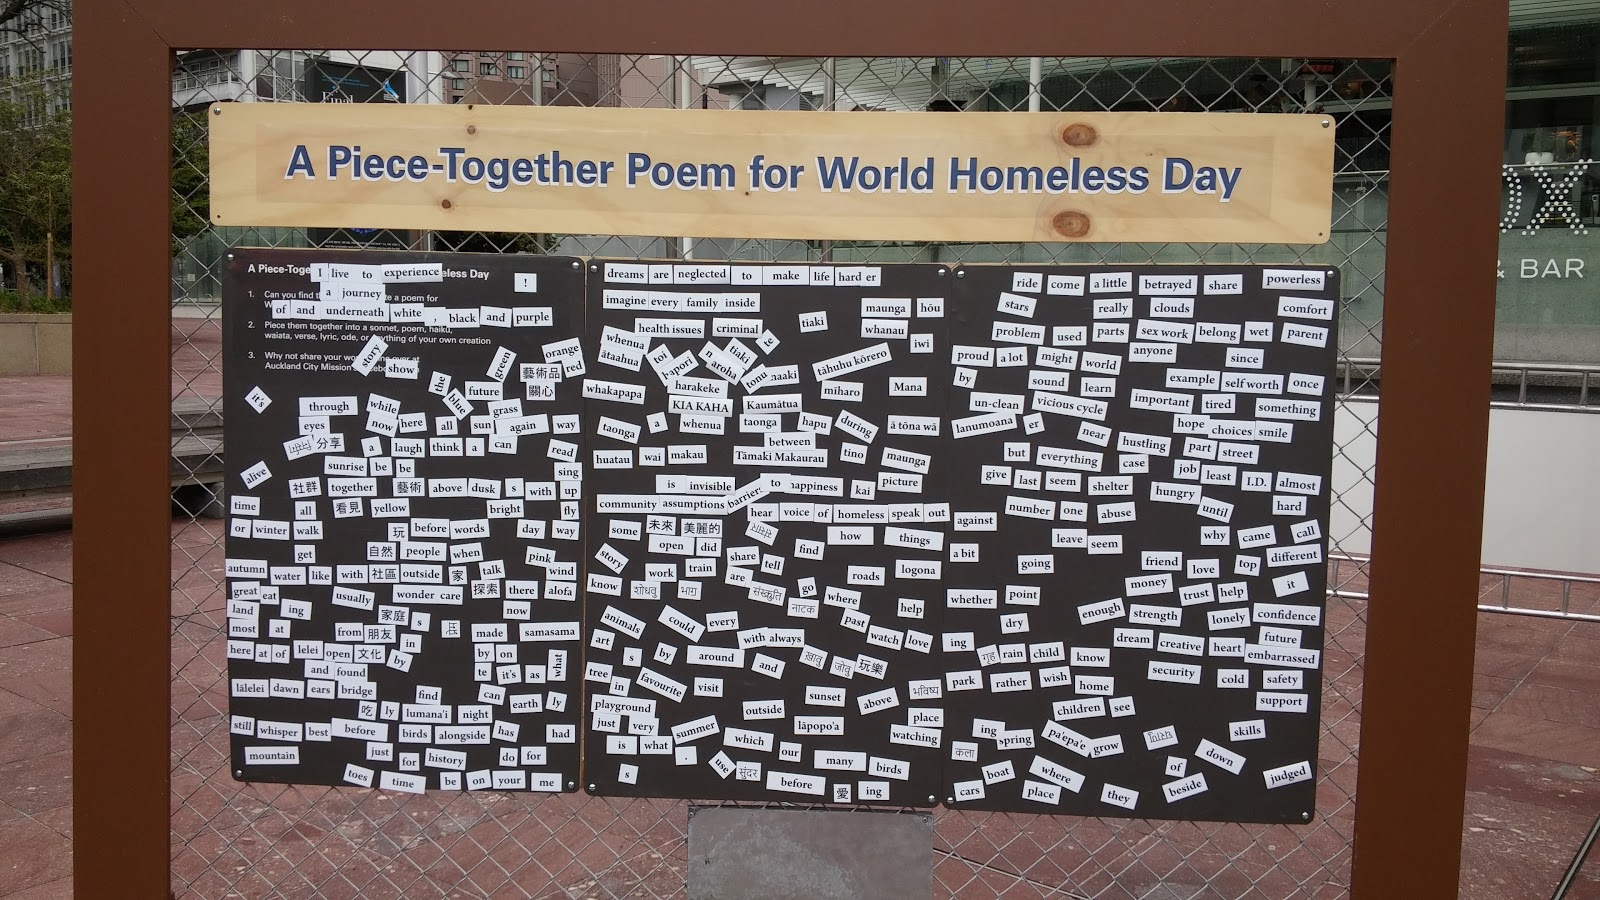 Final
A Piece-Together Poem for World Homeless Day
& BAR
A Piece-Toge
eless Day
I live to experience !
a journey
of and underneath white , black and purple
1. Can you find
te a poem for
2. Piece them together into a sonnet, poem, haiku,
waiata, verse, lyric, ode, or anything of your own creation
3. Why not share your wo
at
Auckland City Mission's
story show green orange red
藝術品
關心
the blue future
it's through while grass
eyes now here all sun again way
分享 a laugh think a can read
alive sunrise be be sing
社群 together 藝術 above dusk s with up
time all 看見 yellow bright fly
or winter walk 玩 before words day way
get 自然 people when pink
autumn water like with 社區 outside 家 talk wind
great eat usually wonder care 探索 there alofa
land ing 家庭 s now
most at from 朋友 in made samasama
here at of lelei open 文化 by by on
and found te it's as what
lālelei dawn ears bridge find can earth ly
吃 ly lumana'i night
still whisper best before birds alongside has had
mountain just for history do for
toes time be on your me
dreams are neglected to make life hard er
imagine every family inside maunga hōu
health issues criminal te tiaki whanau
whenua iwi
ātaahua toi aroha tiaki tāhuhu kōrero
whakapapa harakeke miharo Mana
KIA KAHA Kaumātua
taonga a whenua taonga hapu during ā tōna wā
between
huatau wai makau Tāmaki Makaurau tino maunga
is invisible to happiness kai picture
community assumptions barriers
hear voice of homeless speak out
some 未來 美麗的 how things
open did share find
story work train tell roads logona
know शोधवु भाग are संस्कृति go where help
नाटक
animals could every past watch love
art with always
s by around and खावु जोवु 玩樂
tree in favourite visit sunset above भविष्य
playground outside lāpopo'a place
just very summer which watching
is what . our many birds
s use सुंदर before 愛 ing
ride come a little betrayed share powerless
stars really clouds comfort
problem used parts sex work belong wet parent
proud a lot might world anyone since
by sound learn example self worth once
un-clean vicious cycle important tired something
lanumoana er near hustling hope choices smile
but everything case part street
give last seem shelter job least I.D. almost
number one abuse hungry until hard
against leave seem why came call
a bit going friend love top different
whether point money trust help it
dry enough strength lonely confidence
ing dream creative heart future
गृह rain child know embarrassed
park rather wish home security cold safety
children see support
ing spring pa'epa'e grow skills
कला of down
cars boat where place they beside judged